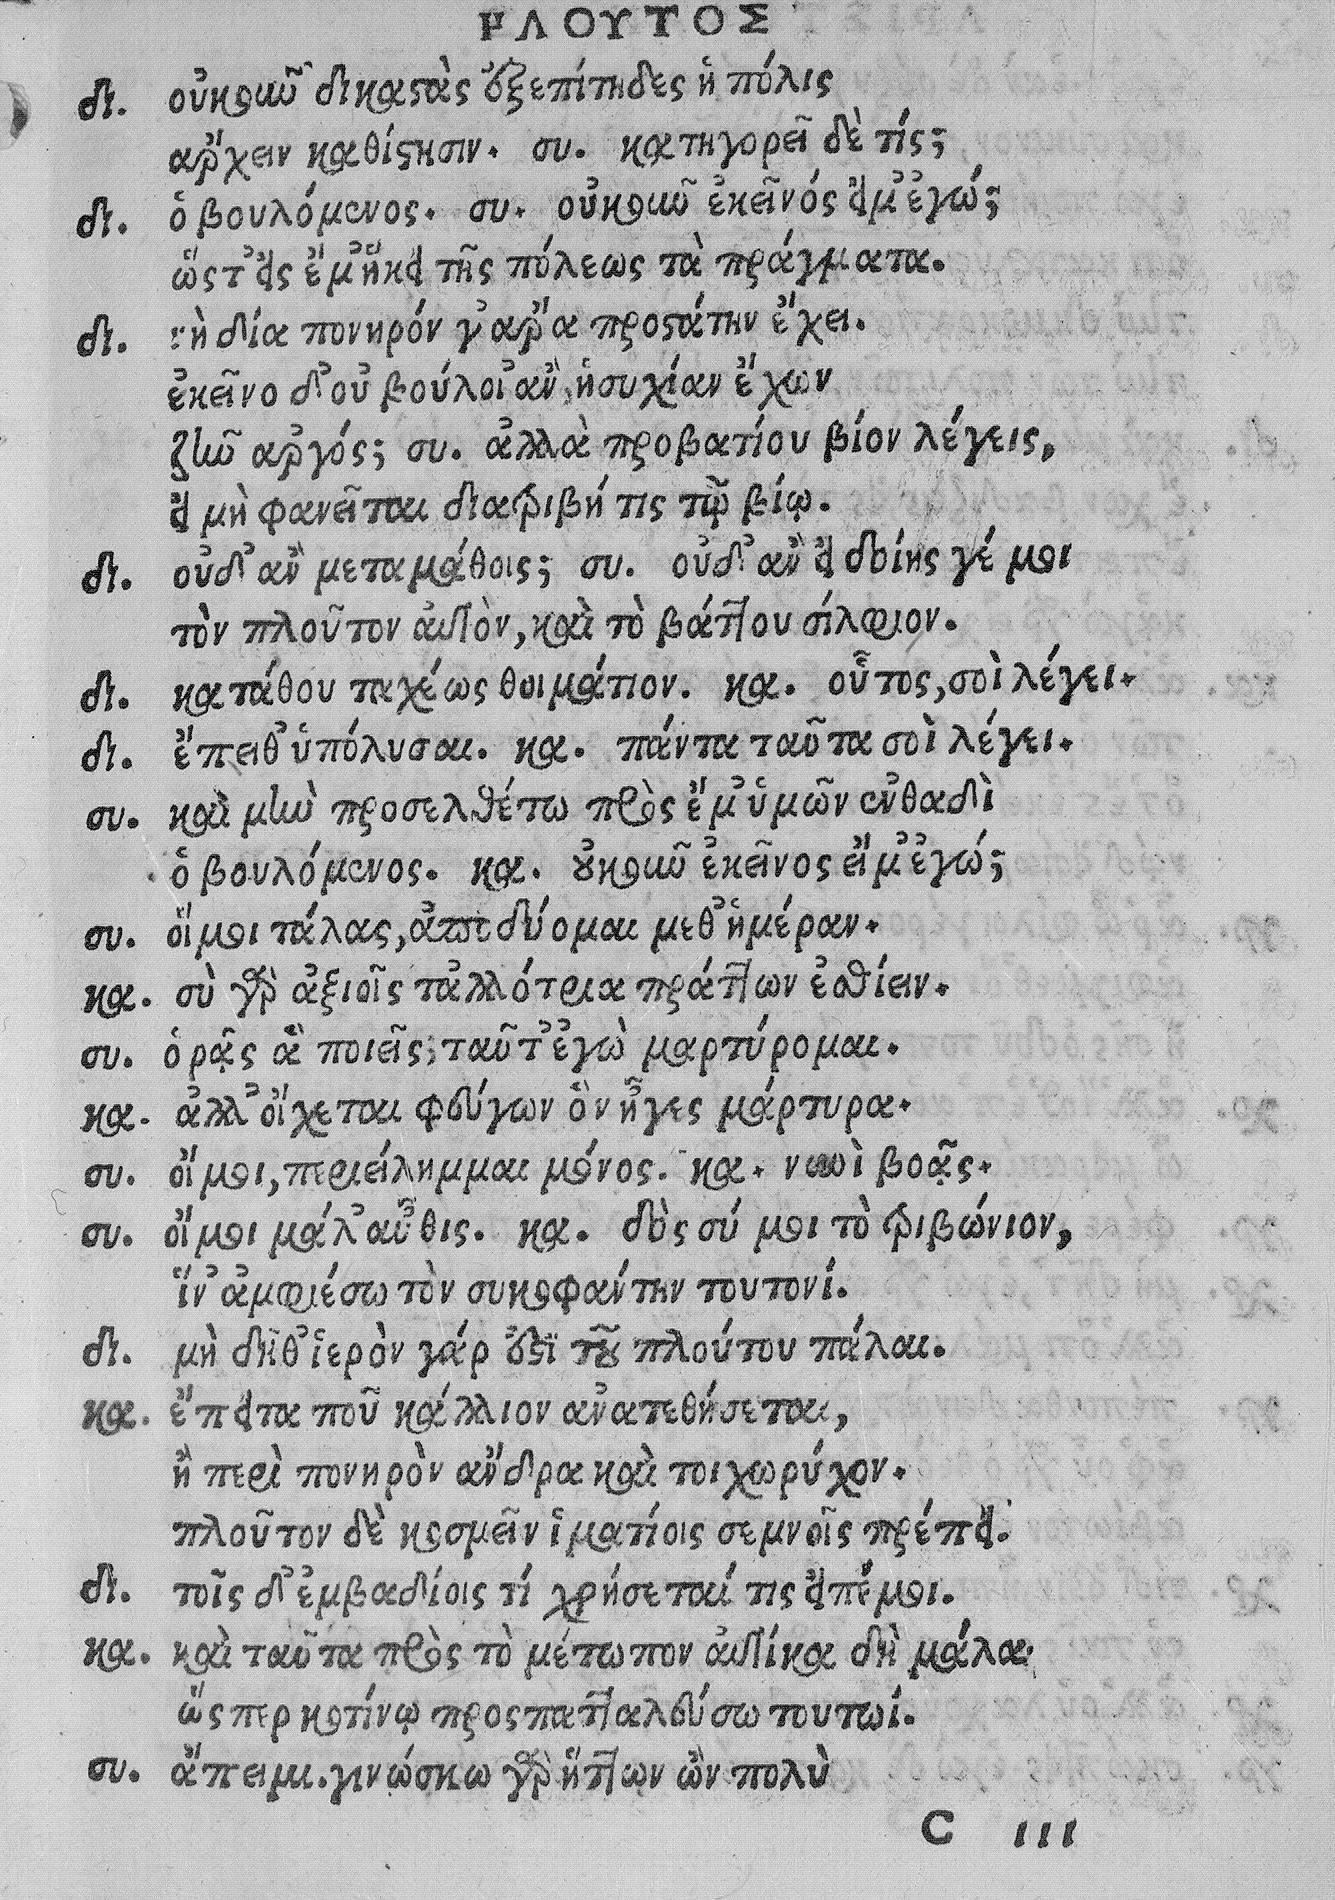 ΠΛΟΥΤΟΣ
δι. οὐκοῦν δικαστὰς ἐξεπίτηδες ἡ πόλις
ἄρχειν καθίστησιν. συ. κατηγορεῖ δὲ τίς;
δι. ὁ βουλόμενος. συ. οὐκοῦν ἐκεῖνός εἰμ' ἐγώ;
ὥςτ' εἰς ἔμ' ἥκει τῆς πόλεως τὰ πράγματα.
δι. νὴ δία πονηρόν γ' ἄρα προστάτην ἔχει.
ἐκεῖνο δ' οὐ βούλοι' ἂν, ἡσυχίαν ἔχων
ζῆν ἀργός; συ. ἀλλὰ προβατίου βίον λέγεις,
εἰ μὴ φανεῖται διατριβή τις τῷ βίῳ.
δι. οὐδ' ἂν μεταμάθοις; συ. οὐδ' ἂν εἰ δοίης γέ μοι
τὸν πλοῦτον αὐτὸν, καὶ τὸ βάττου σίλφιον.
δι. κατάθου ταχέως θοιμάτιον. κα. οὗτος, σοὶ λέγει.
δι. ἔπειθ' ὑπόλυσαι. κα. πάντα ταῦτα σοὶ λέγει.
συ. καὶ μὴν προσελθέτω πρὸς ἔμ' ὑμῶν ἐνθαδὶ
ὁ βουλόμενος. κα. οὐκοῦν ἐκεῖνος εἴμ' ἐγώ;
συ. οἴμοι τάλας, ἀποδύομαι μεθ' ἡμέραν.
κα. σὺ γὰρ ἀξιοῖς τἀλλότρια πράττων ἐσθίειν.
συ. ὁρᾷς ἃ ποιεῖς; ταῦτ' ἐγὼ μαρτύρομαι.
κα. ἀλλ' οἴχεται φεύγων ὃν ἦγες μάρτυρα.
συ. οἴμοι, περιείλημμαι μόνος. κα. νυνὶ βοᾷς.
συ. οἴμοι μάλ' αὖθις. κα. δὸς σύ μοι τὸ τριβώνιον,
ἵν' ἀμφιέσω τὸν συκοφάντην τουτονί.
δι. μὴ δῆθ' ἱερὸν γάρ ἐστὶ τοῦ πλούτου πάλαι.
κα. ἔπειτα ποῦ κάλλιον ἀνατεθήσεται,
ἢ περὶ πονηρὸν ἄνδρα καὶ τοιχωρύχον.
πλοῦτον δὲ κοσμεῖν ἱματίοις σεμνοῖς πρέπει.
δι. τοῖς δ' ἐμβαδίοις τί χρήσεταί τις εἰπέ μοι.
κα. καὶ ταῦτα πρὸς τὸ μέτωπον αὐτίκα δὴ μάλα
ὥςπερ κοτίνῳ προςπατταλεύσω τουτωί.
συ. ἄπειμι. γινώσκω γὰρ ἥττων ὢν πολὺ
C III